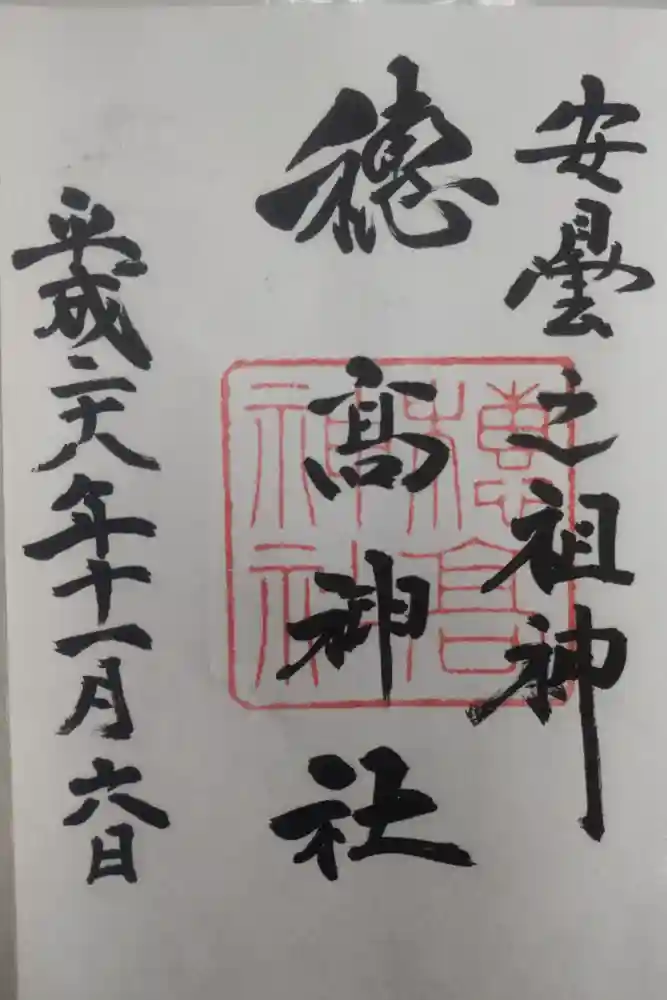 安曇之祖神
穂髙神社
平成二十八年十一月六日
穂髙
神社